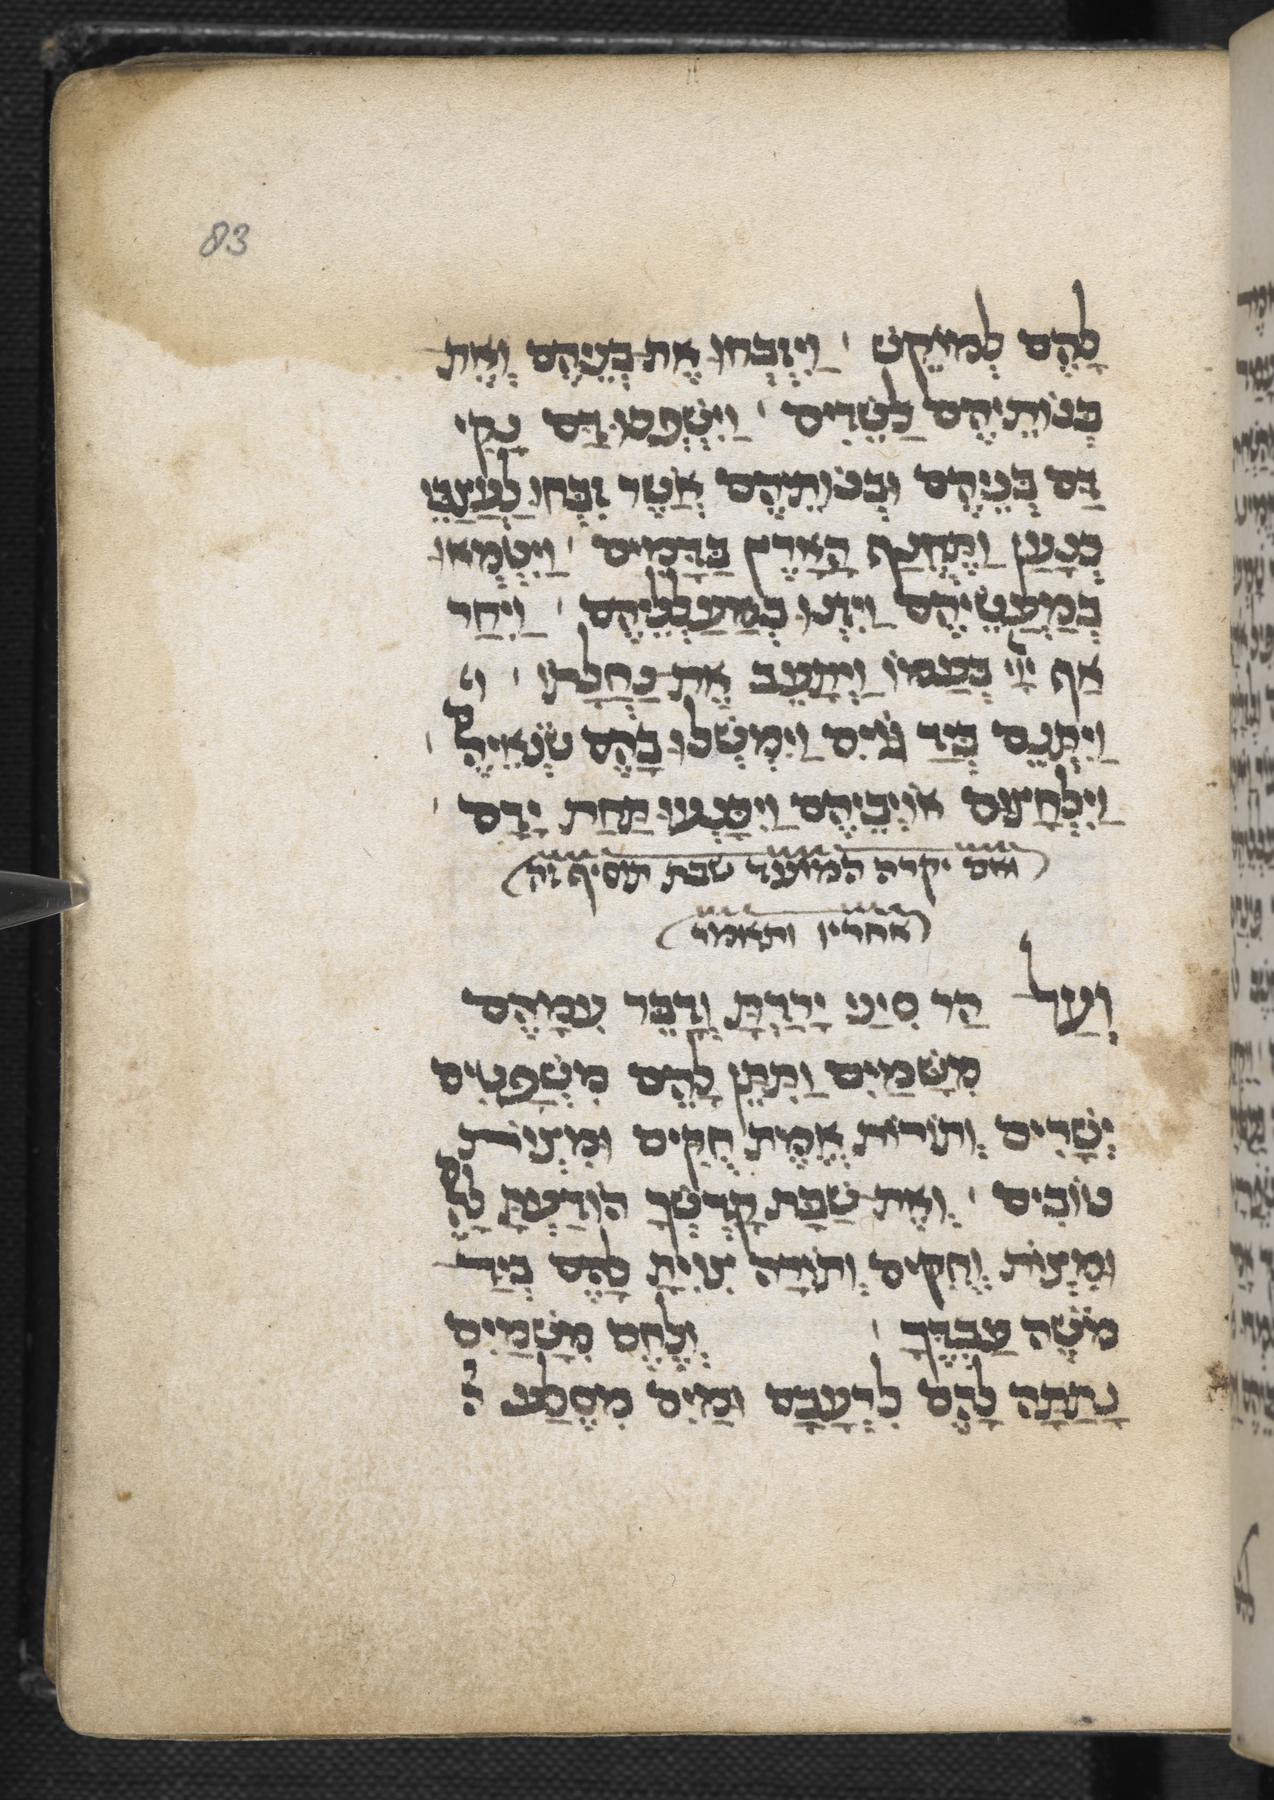 83
לָהֶם לְמוֹקֵשׁ ׳ וַיִּזְבְּחוּ אֶת בְּנֵיהֶם וְאֶת
בְּנוֹתֵיהֶם לַשֵּׁדִים ׳ וַיִּשְׁפְּכוּ דַּם נָקִי
דַּם בְּנֵיהֶם וּבְנוֹתֵיהֶם אֲשֶׁר זִבְּחוּ לַעֲצַבֵּי
כְנָעַן וַתֶּחֱנַף הָאָרֶץ בַּדָּמִים ׳ וַיִּטְמְאוּ
בְמַעֲשֵׂיהֶם וַיִּזְנוּ בְּמַעַלְלֵיהֶם ׳ וַיִּחַר
אַף יְיָ בְּעַמּוֹ וַיְתָעֵב אֶת נַחֲלָתוֹ ׳ וי
וַיִּתְּנֵם בְּיַד גּוֹיִם וַיִּמְשְׁלוּ בָהֶם שׂנְאֵיהֶם ׳
וַיִּלְחָצוּם אוֹיְבֵיהֶם וַיִּכָּנְעוּ תַּחַת יָדָם ׳
ואם יקרה המועד שבת תוסיף זה
אחריו ותאמר
וְעַל הַר סִינַי יָרַדְתָּ וְדַבֵּר עִמָּהֶם
מִשָּׁמַיִם וַתִּתֵּן לָהֶם מִשְׁפָּטִים
יְשָׁרִים וְתוֹרוֹת אֱמֶת חֻקִּים וּמִצְוֹת
טוֹבִים ׳ וְאֶת שַׁבַּת קָדְשְׁךָ הוֹדַעְתָּ לָהֶם
וּמִצְוֹת וְחֻקִּים וְתוֹרָה צִוִּיתָ לָהֶם בְּיַד
מֹשֶׁה עַבְדֶּךָ ׳ וְלֶחֶם מִשָּׁמַיִם
נָתַתָּה לָהֶם לִרְעָבָם וּמַיִם מִסֶּלַע ה